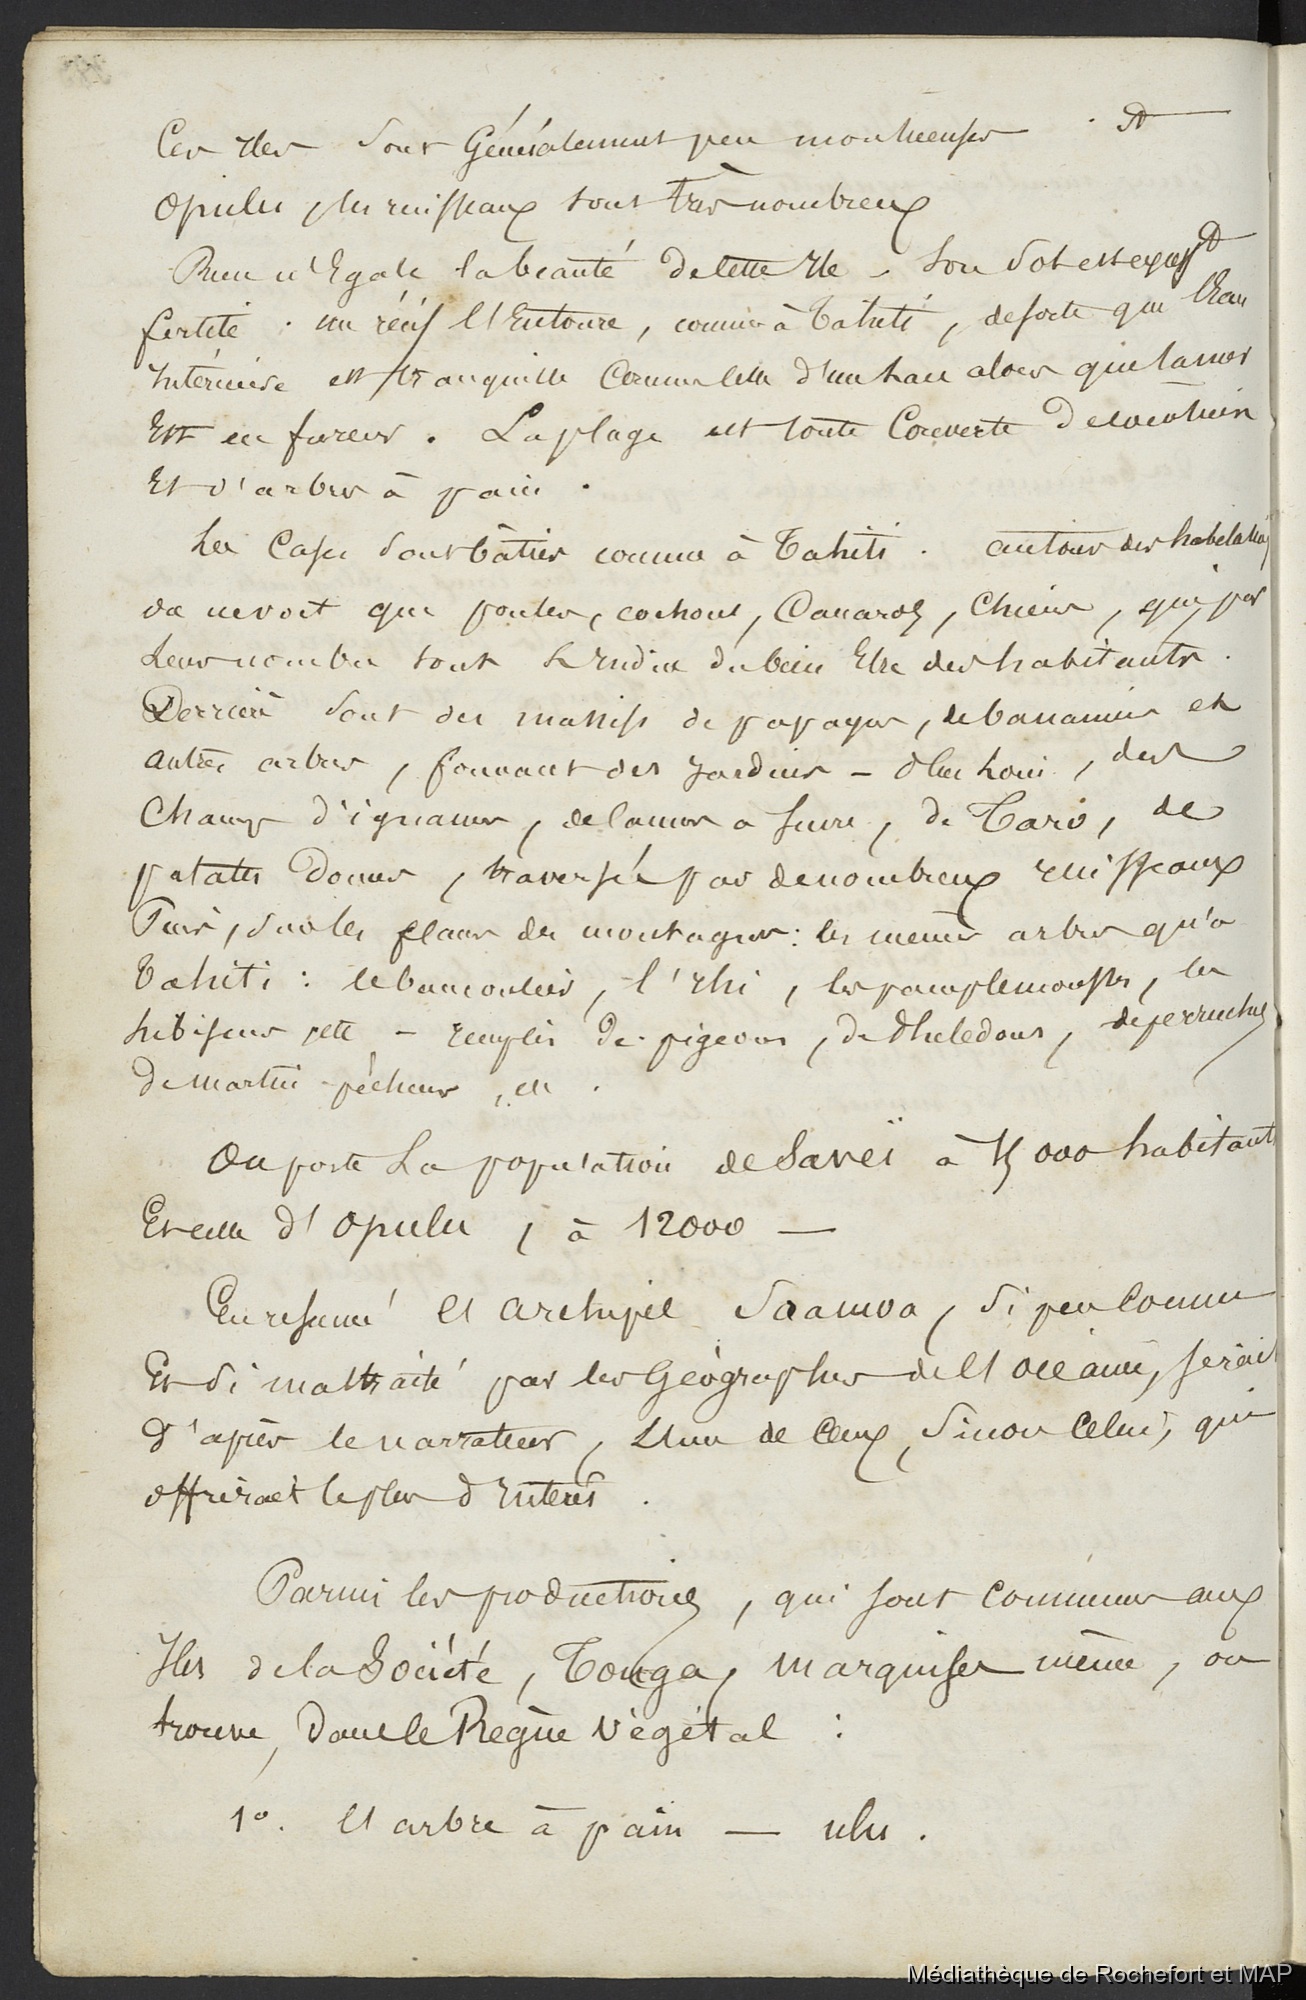 Ces Iles sont Généralement peu montueuses . A
Opulu, les ruisseaux sont très nombreux
Rien n'Egale la beauté de cette Ile - Son Sol est
fertile . un récif l'Entoure, comme à Tahiti, de sorte que l'Eau
Intérieure est tranquille Comme celle d'un havre alors que la mer
Est en fureur . La plage est toute Couverte De cocotiers
Et d'arbres à pain .
Les Cases sont bâties comme à Tahiti . autour des habitations
on ne voit que poules, cochons, Canards, Chiens, qui, par
Leur nombre sont l'Indice du bien Etre des habitants .
Derrière sont des massifs de papayers, de bananiers et
autres arbres, formant des Jardins - plus loin, des
Champs d'ignames, de cannes a sucre, de Taro, de
patates Douces, traversés par de nombreux ruisseaux
Puis, sur les flancs des montagnes : les mêmes arbres qu'à
Tahiti : le bancoulier, l'Ihi, les pamplemousses, les
hibiscus, etc - remplis De pigeons, de Philedons, de perruches
De martin-pêcheurs, etc .
On porte La population de Saveï à 15000 habitants
Et celle d'Opulu, à 12000 —
En résumé l'archipel Saamoa, si peu Connu
Et si maltraité par les Géographes de l'océanie, serait
d'après le narrateur, L'un de Ceux, Sinon Celui, qui
offrirait le plus d'Intérêt .
Parmi les productions, qui sont Communes aux
Iles de la Société, Tonga, Marquises même, on
trouve, Dans le Règne Végétal :
1°. l'arbre à pain — ulu .
Médiathèque de Rochefort et MAP